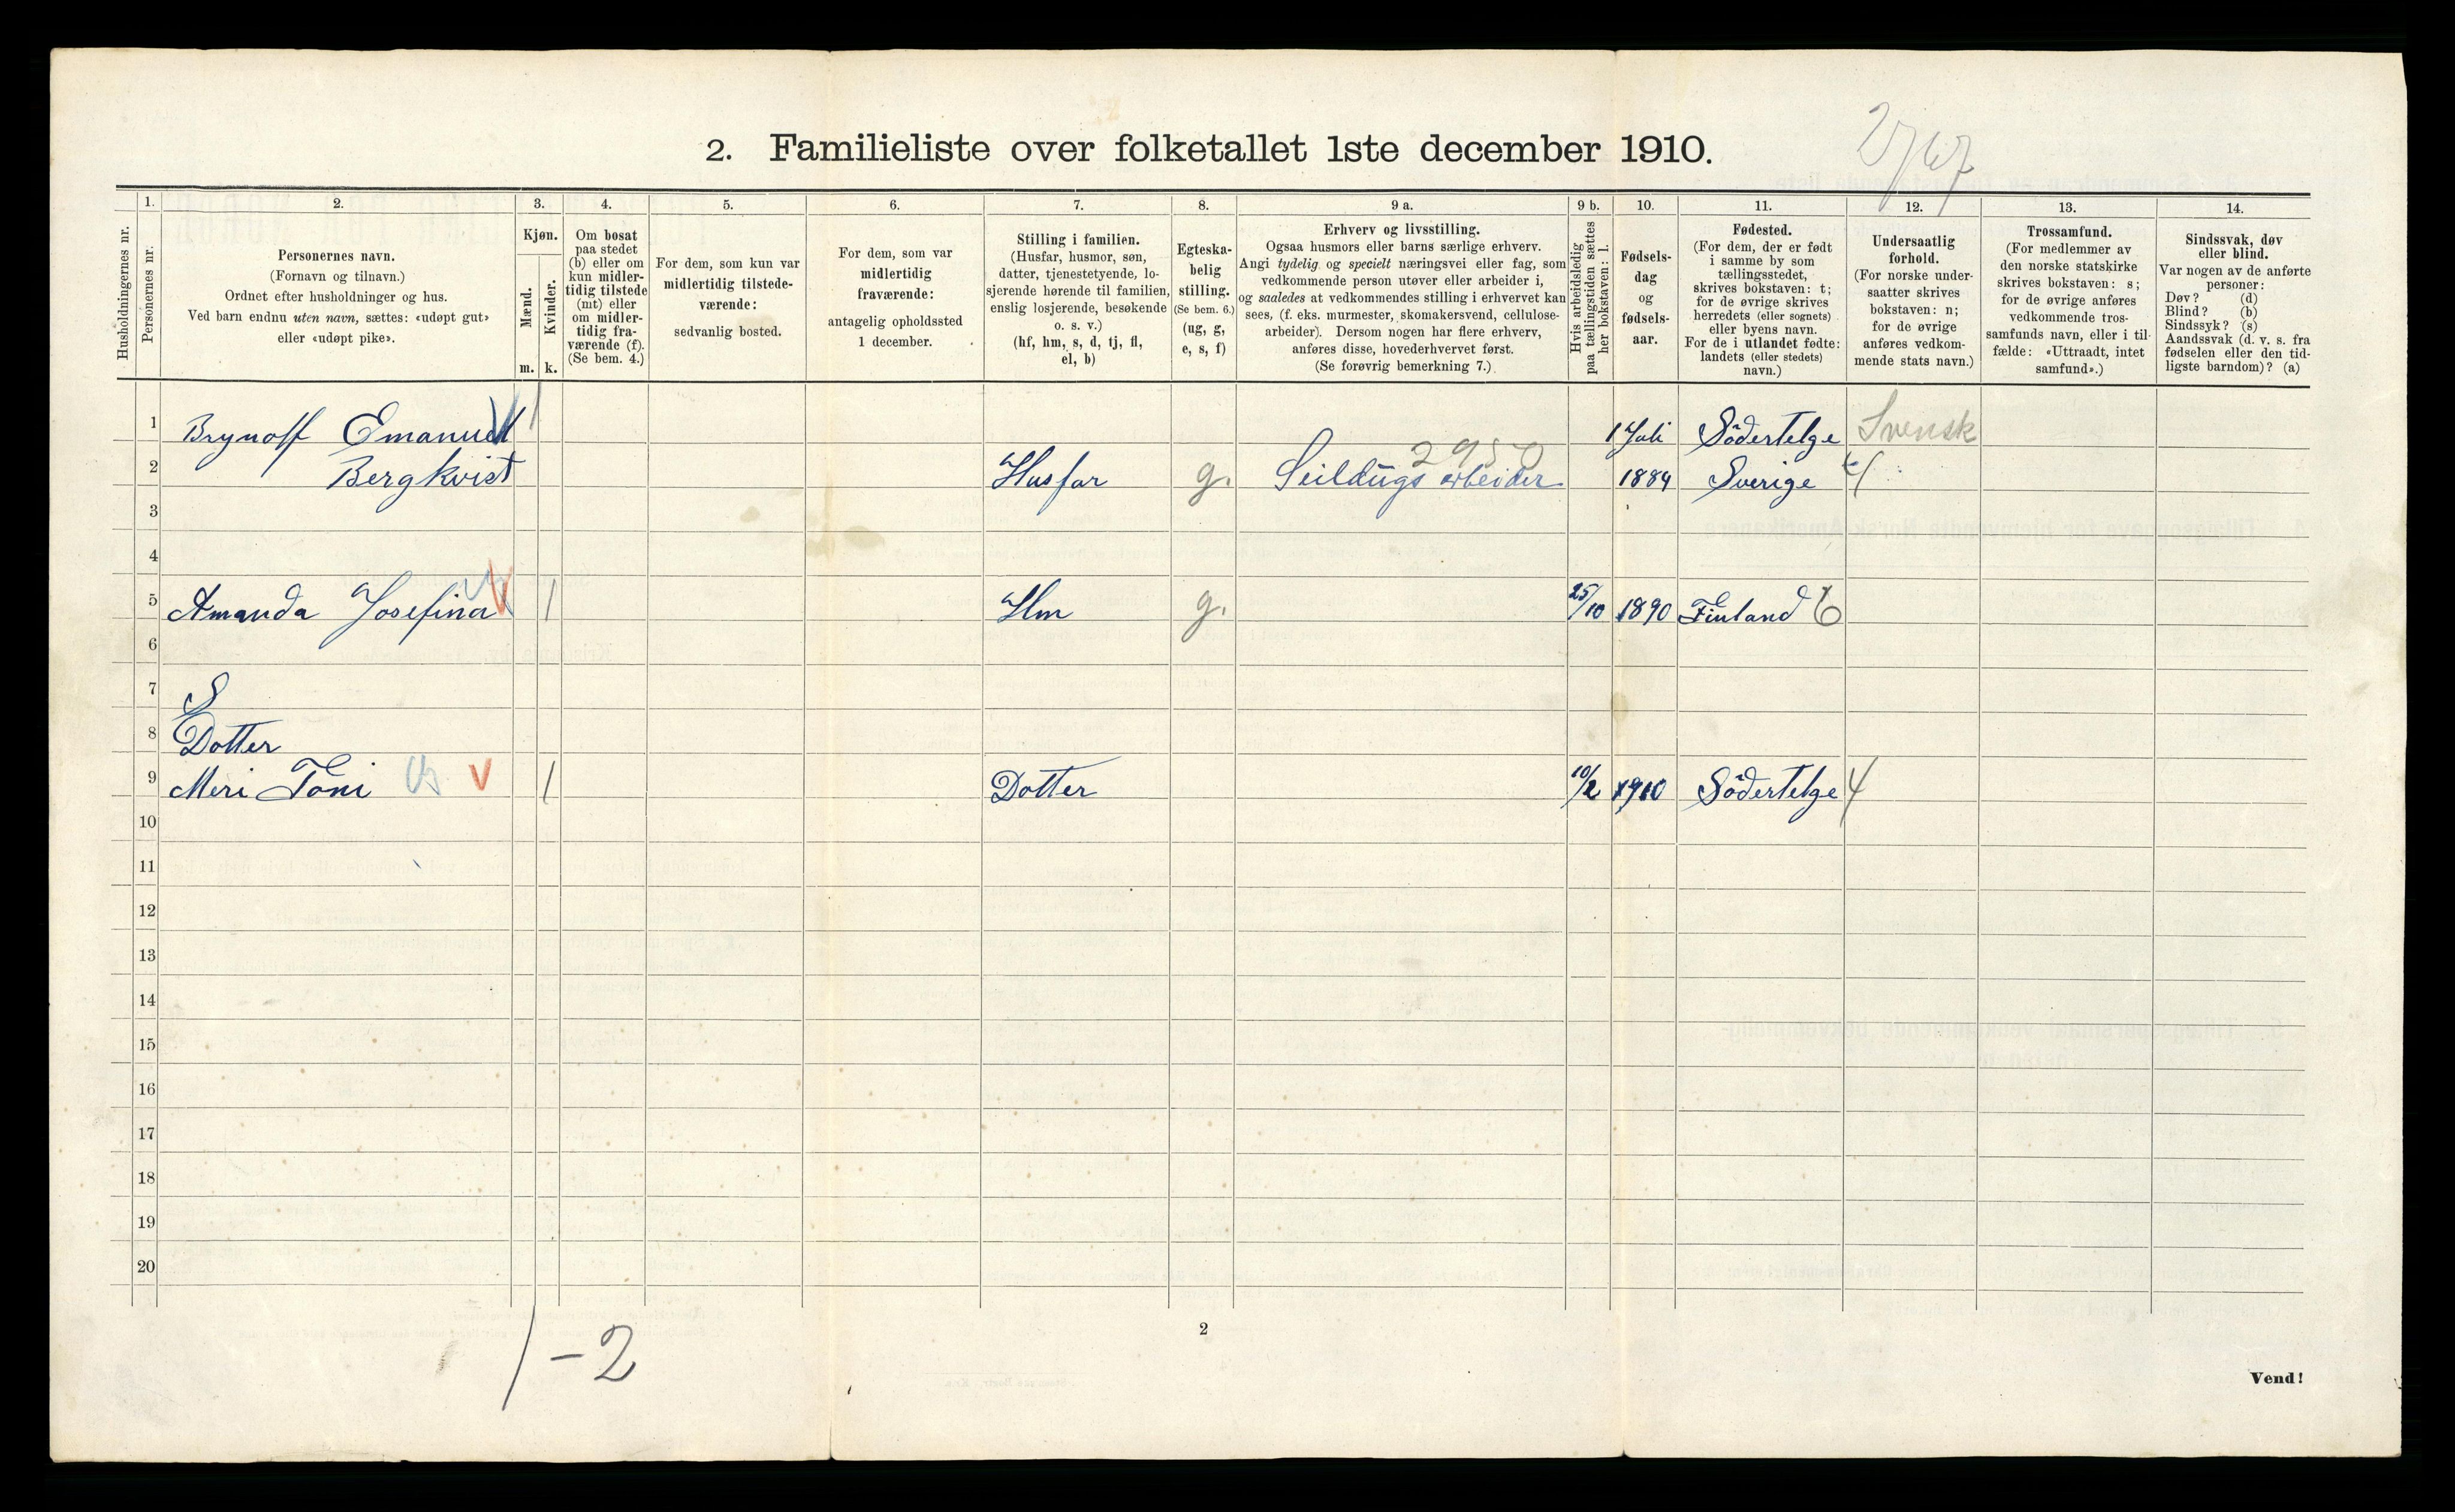 2. Familieliste over folketallet 1ste december 1910.
1. 2. 3. 4. 5. 6. 7. 8. 9 a. 9 b. 10. 11. 12. 13. 14.
Husholdningernes nr.
Personernes nr.
Personernes navn.
(Fornavn og tilnavn.)
Ordnet efter husholdninger og hus.
Ved barn endnu uten navn, sættes: «udøpt gut»
eller «udøpt pike».
Kjøn.
Mænd.
Kvinder.
m. k.
Om bosat
paa stedet
(b) eller om
kun midler-
tidig tilstede
(mt) eller
om midler-
tidig fra-
værende (f).
(Se bem. 4.)
For dem, som kun var
midlertidig tilstede-
værende:
sedvanlig bosted.
For dem, som var
midlertidig
fraværende:
antagelig opholdssted
1 december.
Stilling i familien.
(Husfar, husmor, søn,
datter, tjenestetyende, lo-
sjerende hørende til familien,
enslig losjerende, besøkende
o. s. v.)
(hf, hm, s, d, tj, fl,
el, b)
Egteska-
belig
stilling.
(Se bem. 6.)
(ug, g,
e, s, f)
Erhverv og livsstilling.
Ogsaa husmors eller barns særlige erhverv.
Angi tydelig og specielt næringsvei eller fag, som
vedkommende person utøver eller arbeider i,
og saaledes at vedkommendes stilling i erhvervet kan
sees, (f. eks. murmester, skomakersvend, cellulose-
arbeider). Dersom nogen har flere erhverv,
anføres disse, hovederhvervet først.
(Se forøvrig bemerkning 7.)
Hvis arbeidsledig
paa tællingstiden sættes
her bokstaven: l.
Fødsels-
dag
og
fødsels-
aar.
Fødested.
(For dem, der er født
i samme by som
tællingsstedet,
skrives bokstaven: t;
for de øvrige skrives
herredets (eller sognets)
eller byens navn.
For de i utlandet fødte:
landets (eller stedets)
navn.)
Undersaatlig
forhold.
(For norske under-
saatter skrives
bokstaven: n;
for de øvrige
anføres vedkom-
mende stats navn.)
Trossamfund.
(For medlemmer av
den norske statskirke
skrives bokstaven: s;
for de øvrige anføres
vedkommende tros-
samfunds navn, eller i til-
fælde: «Uttraadt, intet
samfund».)
Sindssvak, døv
eller blind.
Var nogen av de anførte
personer:
Døv? (d)
Blind? (b)
Sindssyk? (s)
Aandssvak (d. v. s. fra
fødselen eller den tid-
ligste barndom)? (a)
1 Brynolf Emanuel 1 1 Juli Södertelge Svensk
2950
2 Bergkvist Husfar g. Seildugs arbeider 1884 Sverige
3
4
5 Amanda Josefina 1 Hm g. 25/10 1890 Finland 6
6
7 S
8 Dotter
9 Meri Toni v 1 Dotter 10/2 1910 Södertelge 4
10
11
12
13
14
15
16
17
18
19
20
1-2
2
Vend!